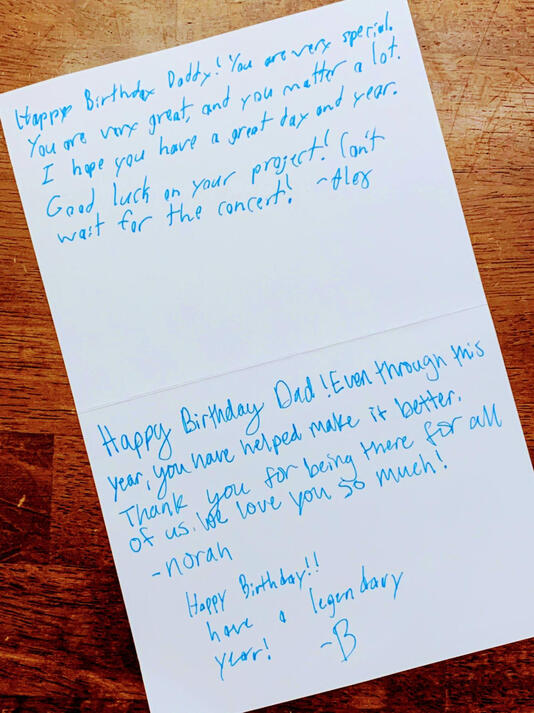 Happy Birthday Daddy! You are very special.
You are very great, and you matter a lot.
I hope you have a great day and year.
Good luck on your project! Can't
wait for the concert! -Alex
Happy Birthday Dad! Even through this
year, you have helped make it better.
Thank you for being there for all
of us. We love you so much!
-norah
Happy Birthday!!
have a legendary
year! -B